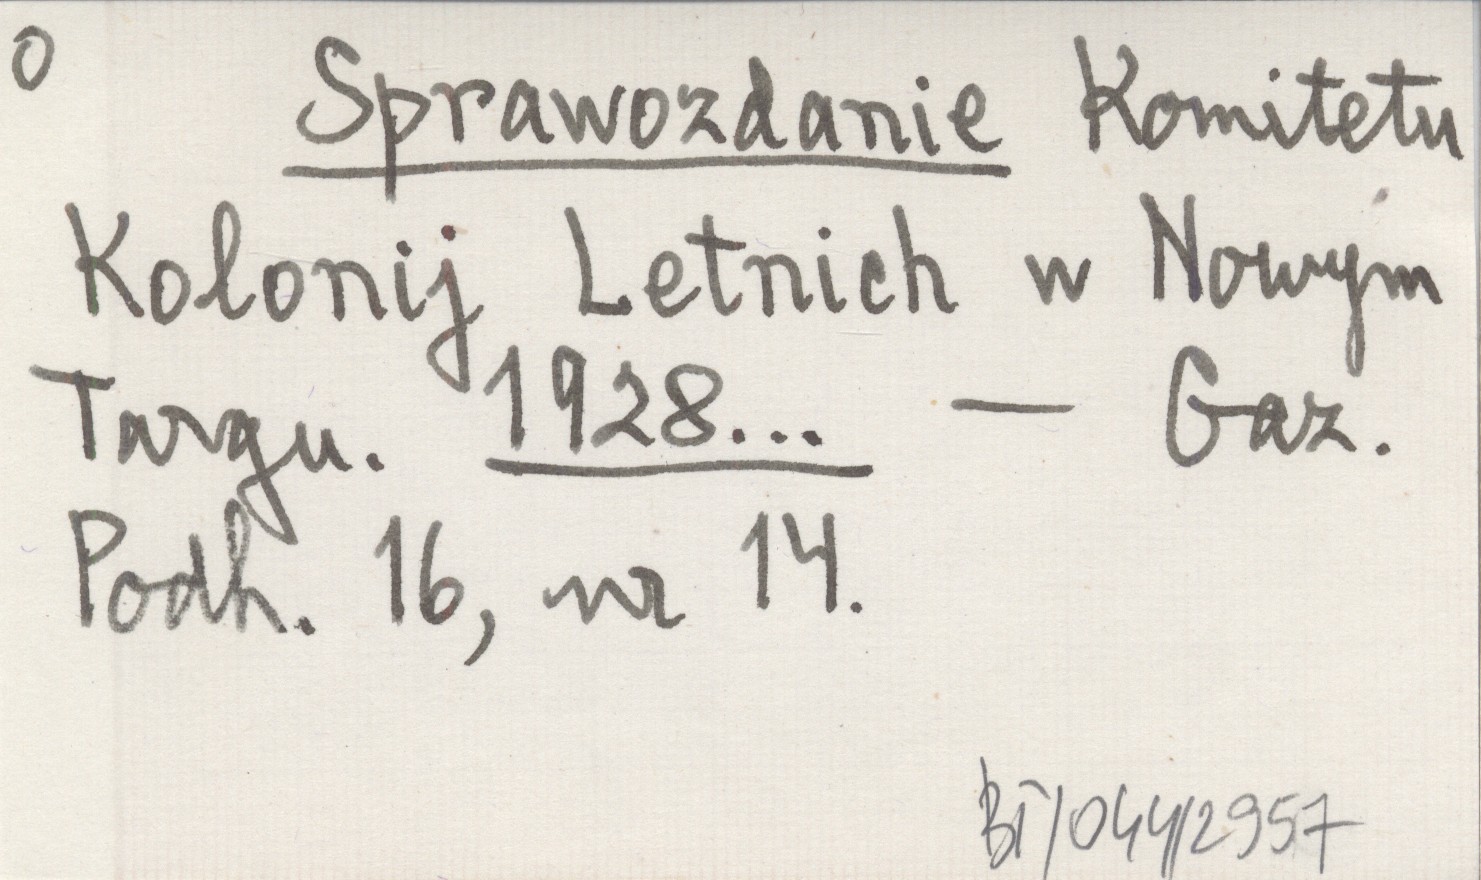 O
Sprawozdanie Komitetu
Kolonij Letnich w Nowym
Targu. 1928... — Gaz.
Podh. 16, nr 14.
BT/044/2957